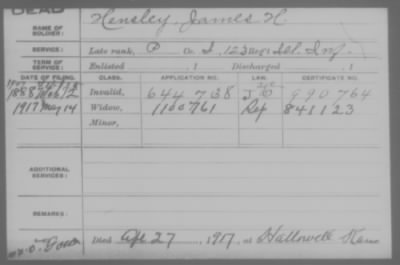 DEAD
NAME OF SOLDIER: Hensley, James H
SERVICE: Late rank, P Co. I, 123 Reg't Ill. Inf.
TERM OF SERVICE: Enlisted , 1 Discharged , 1
DATE OF FILING. CLASS. APPLICATION NO. LAW. CERTIFICATE NO.
1888 Invalid, 644738 990764
1917 May 14 Widow, 1100761 Rep 841123
Minor,
ADDITIONAL SERVICES:
REMARKS:
Died Apr 27, 1917, at Hallowell Kans